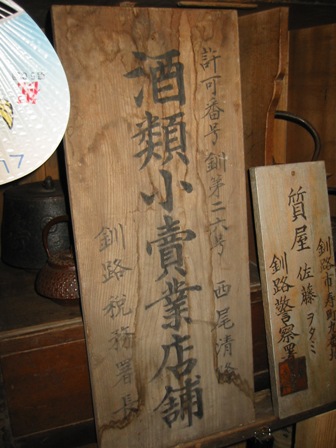 許可番号 釧第二六号 西尾清
酒類小賣業店舗
釧路税務署長
釧路市
質屋 佐藤ヲタミ
釧路警察署
17